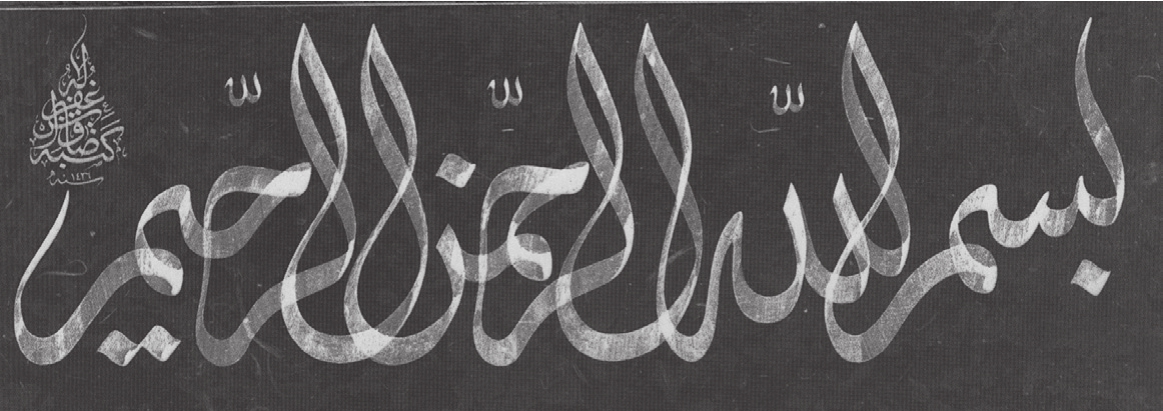 بسم الله الرحمن الرحيم
كتبه
غفر له
سنة